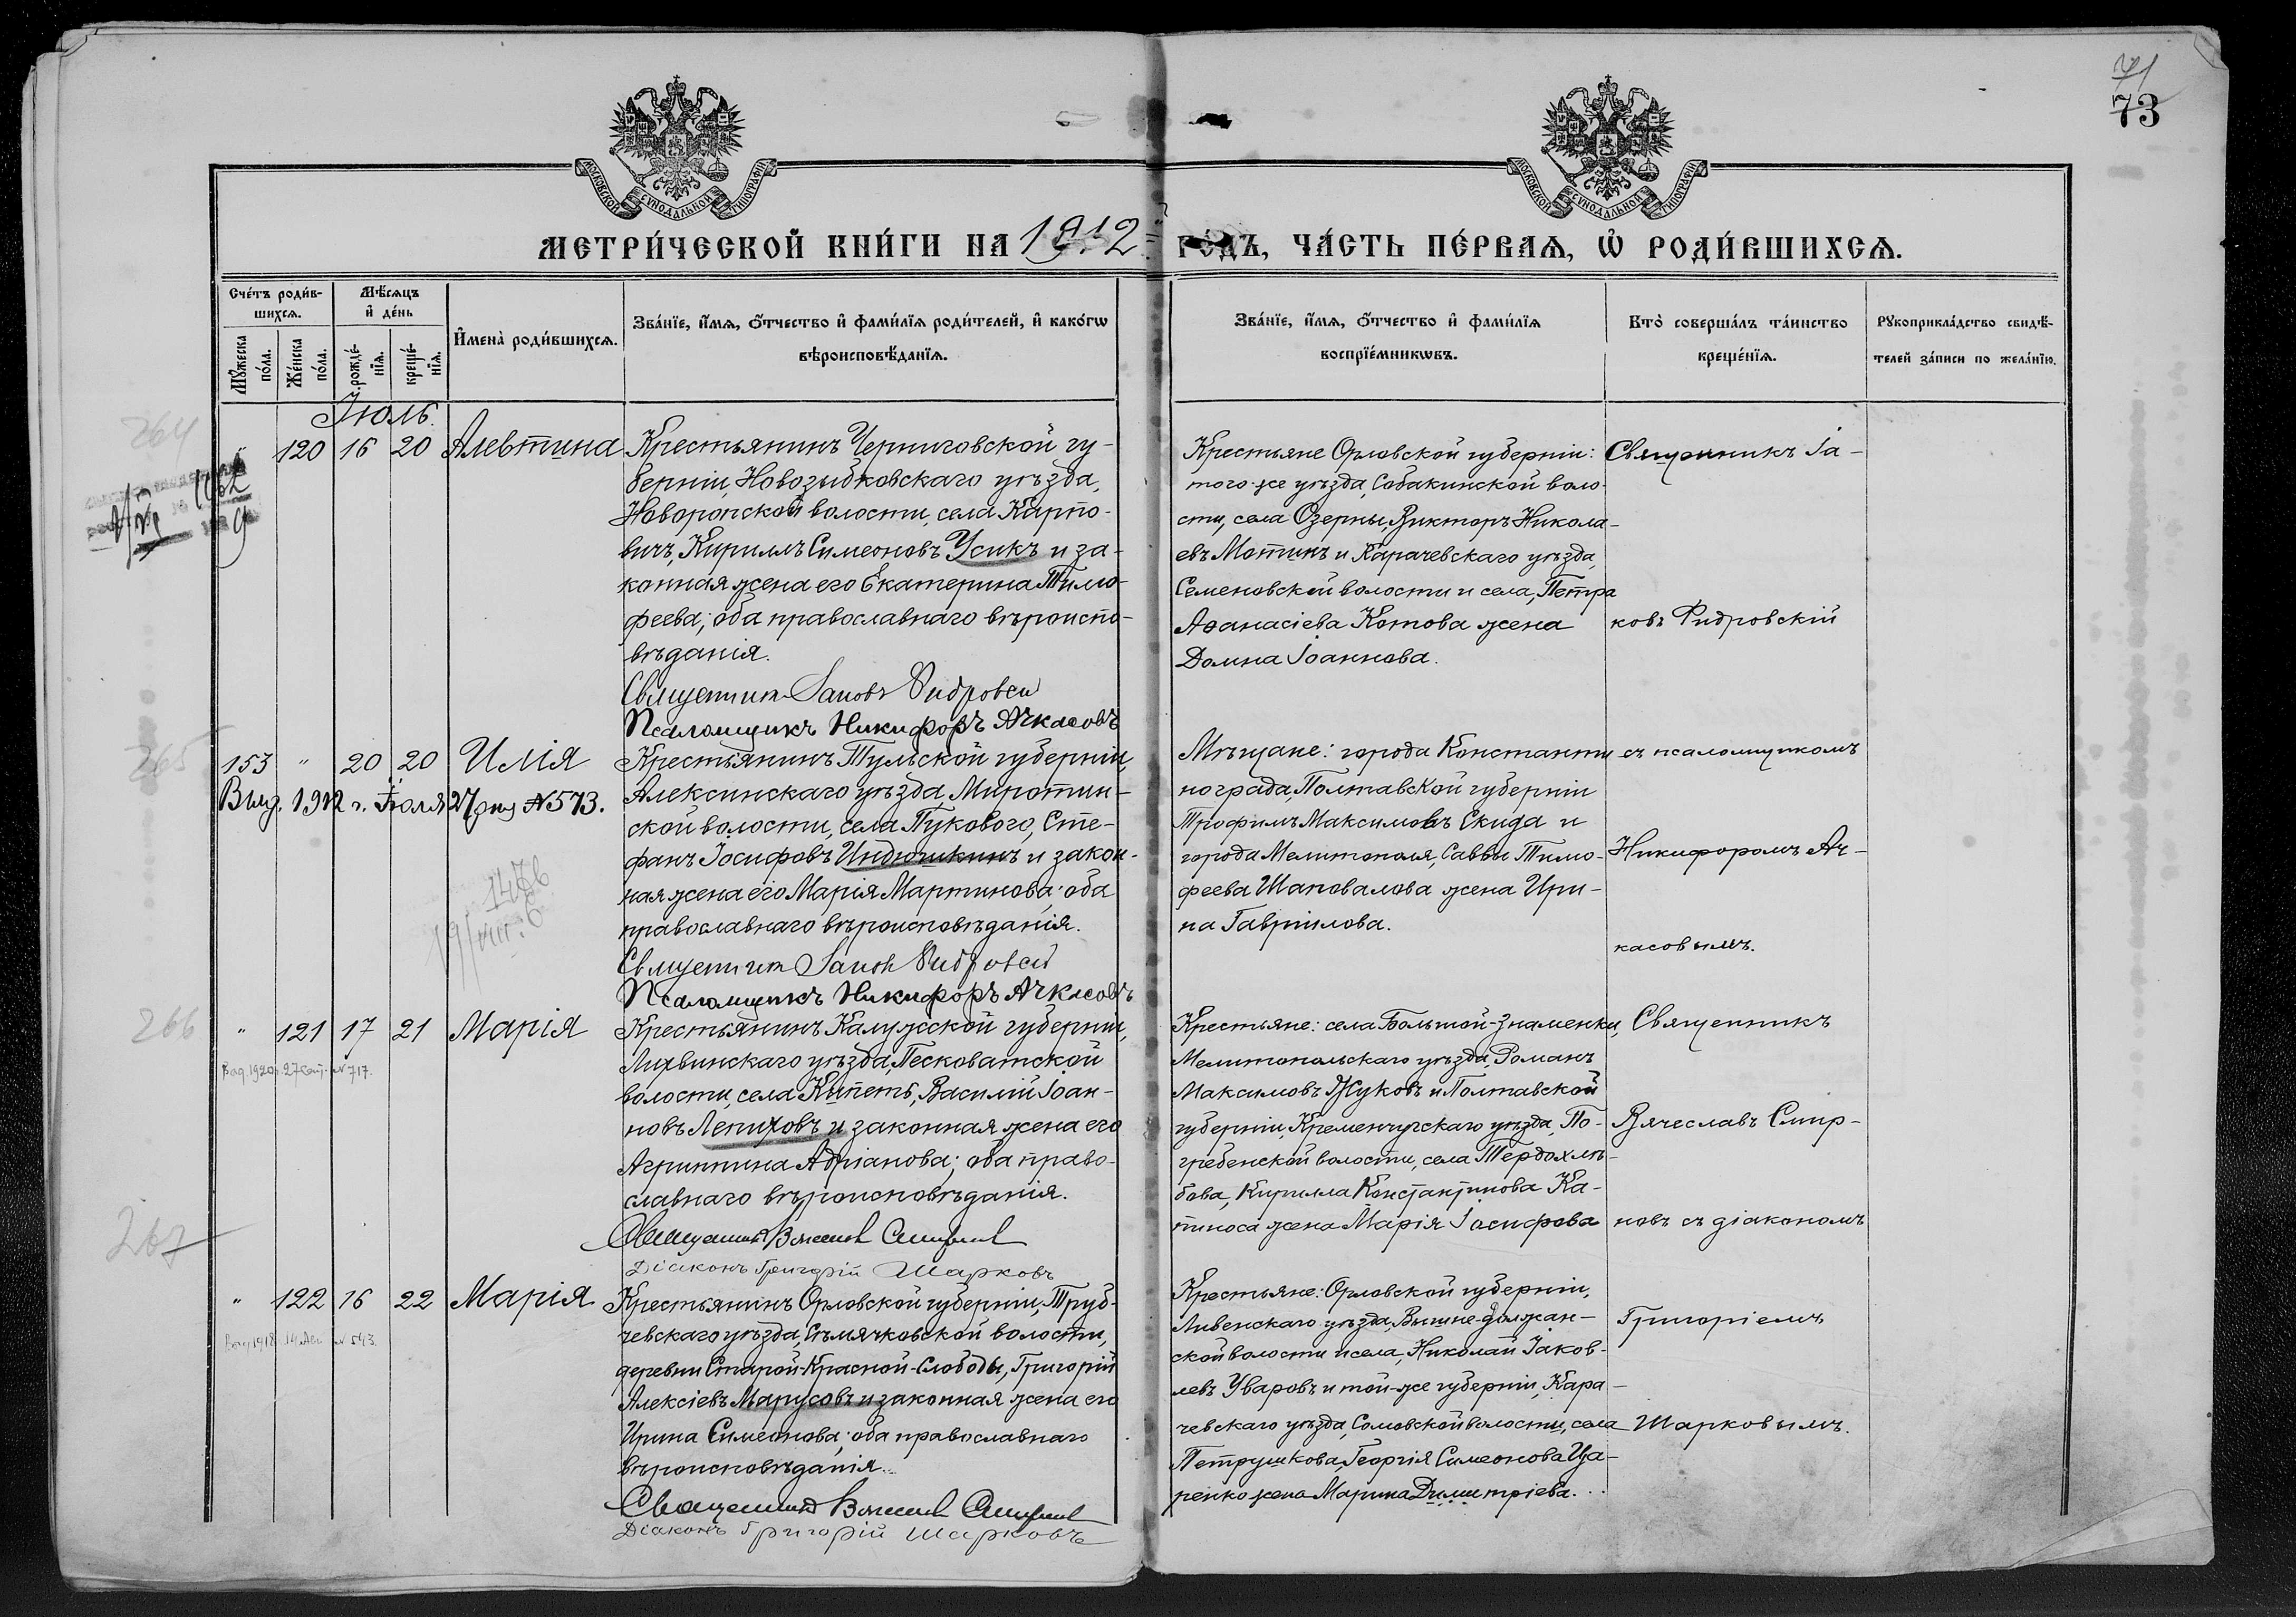 73
МОСКОВСКОЙ СѴНОДАЛЬНОЙ ТИПОГРАФІИ
МОСКОВСКОЙ СѴНОДАЛЬНОЙ ТИПОГРАФІИ
МЕТРИ́ЧЕСКОЙ КНИ́ГИ НА 1912 ГОДЪ, ЧА́СТЬ ПЕ́РВАѦ, Ѡ҆ РОДИ́ВШИХСѦ.
Сче́тъ роди́в-
шихсѧ.
Мѣ́сѧцъ
и҆ де́нь
Мꙋ́жеска по́ла.
Же́нска по́ла.
рожде́-
нїѧ.
креще́-
нїѧ.
И҆мена̀ роди́вшихсѧ.
Зва́нїе, и҆́мѧ, ѻ҆́тчество и҆ фами́лїѧ роди́телей, и҆ како́гѡ
вѣроисповѣ́данїѧ.
Зва́нїе, и҆́мѧ, ѻ҆́тчество и҆ фами́лїѧ
воспрїе́мникѡвъ.
Кто̀ соверша́лъ та́инство
креще́нїѧ.
Рꙋкоприкла́дство свидѣ́-
телей за́писи по жела́нїю.
Іюль.
264
" 120 16 20 Алевтина
Крестьянинъ Черниговской гу-
берніи, Новозыбковскаго уѣзда,
Новоропской волости, села Карпо-
вичъ, Кириллъ Симеоновъ Усикъ и за-
конная жена его Екатерина Тимо-
феева; оба православнаго вѣроиспо-
вѣданія.
Священникъ Іаковъ Фидровскій
Псаломщикъ Никифоръ Ачкасовъ
Крестьяне Орловской губерніи:
того-же уѣзда, Собакинской воло-
сти, села Озерны, Викторъ Никола-
евъ Мотинъ и Карачевскаго уѣзда,
Семеновской волости и села, Петра
Аѳанасіева Котова жена
Домна Іоаннова.
Священникъ Іа-
ковъ Фидровскій
265
153 " 20 20 Илія
Выд. 1912 г. Іюля 27 дня №573.
Крестьянинъ Тульской губерніи,
Алексинскаго уѣзда, Миротин-
ской волости, села Пукового, Сте-
фанъ Іосифовъ Индюшкинъ и закон-
ная жена его Марія Мартинова; оба
православнаго вѣроисповѣданія.
Священникъ Іаковъ Фидровскій
Псаломщикъ Никифоръ Ачкасовъ
Мѣщане: города Константи
нограда, Полтавской губерніи
Трофимъ Максимовъ Скида и
города Мелитополя, Саввы Тимо-
феева Шаповалова жена Ири-
на Гавріилова.
съ псаломщикомъ
Никифоромъ Ач-
касовымъ.
266
" 121 17 21 Марія
Выд. 1920 г. 27 Сент. №717.
Крестьянинъ Калужской губерніи,
Лихвинскаго уѣзда, Песковатской
волости, села Кипеть, Василій Іоан-
новъ Лепиховъ и законная жена его
Агриппина Адріанова; оба право-
славнаго вѣроисповѣданія.
Священникъ Вячеславъ Смирновъ
Діаконъ Григорій Шарковъ
Крестьяне: села Большой-Знаменки,
Мелитопольскаго уѣзда, Романъ
Максимовъ Жуковъ и Полтавской
губерніи, Кременчугскаго уѣзда, По-
гребенской волости, села Тердохлѣ-
бова, Кирилла Константинова Ка-
пиноса жена Марія Іосифова
Священникъ
Вячеславъ Смир-
новъ съ діакономъ
267
" 122 16 22 Марія
Выд. 1918 14 Дек №543.
Крестьянинъ Орловской губерніи, Труб-
чевскаго уѣзда, Сѣмячковской волости,
деревни Старой-Красной-Слободы, Григорій
Алексіевъ Марусовъ и законная жена его
Ирина Симеонова; оба православнаго
вѣроисповѣданія.
Священникъ Вячеславъ Смирновъ
Діаконъ Григорій Шарковъ
Крестьяне: Орловской губерніи,
Ливенскаго уѣзда, Вышне-Должан-
ской волости и села, Николай Іаков-
левъ Уваровъ и той-же губерніи, Кара-
чевскаго уѣзда, Сомовской волости, села
Петрушкова, Георгія Симеонова Ца-
ренко жена Марина Димитріева.
Григоріемъ
Шарковымъ.